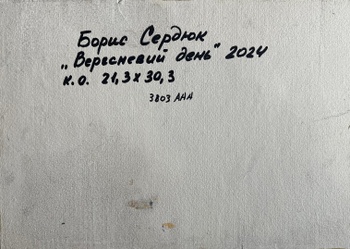 Борис Сердюк
„Вересневий день" 2024
к.о. 21,3 х 30,3
3803 ААА